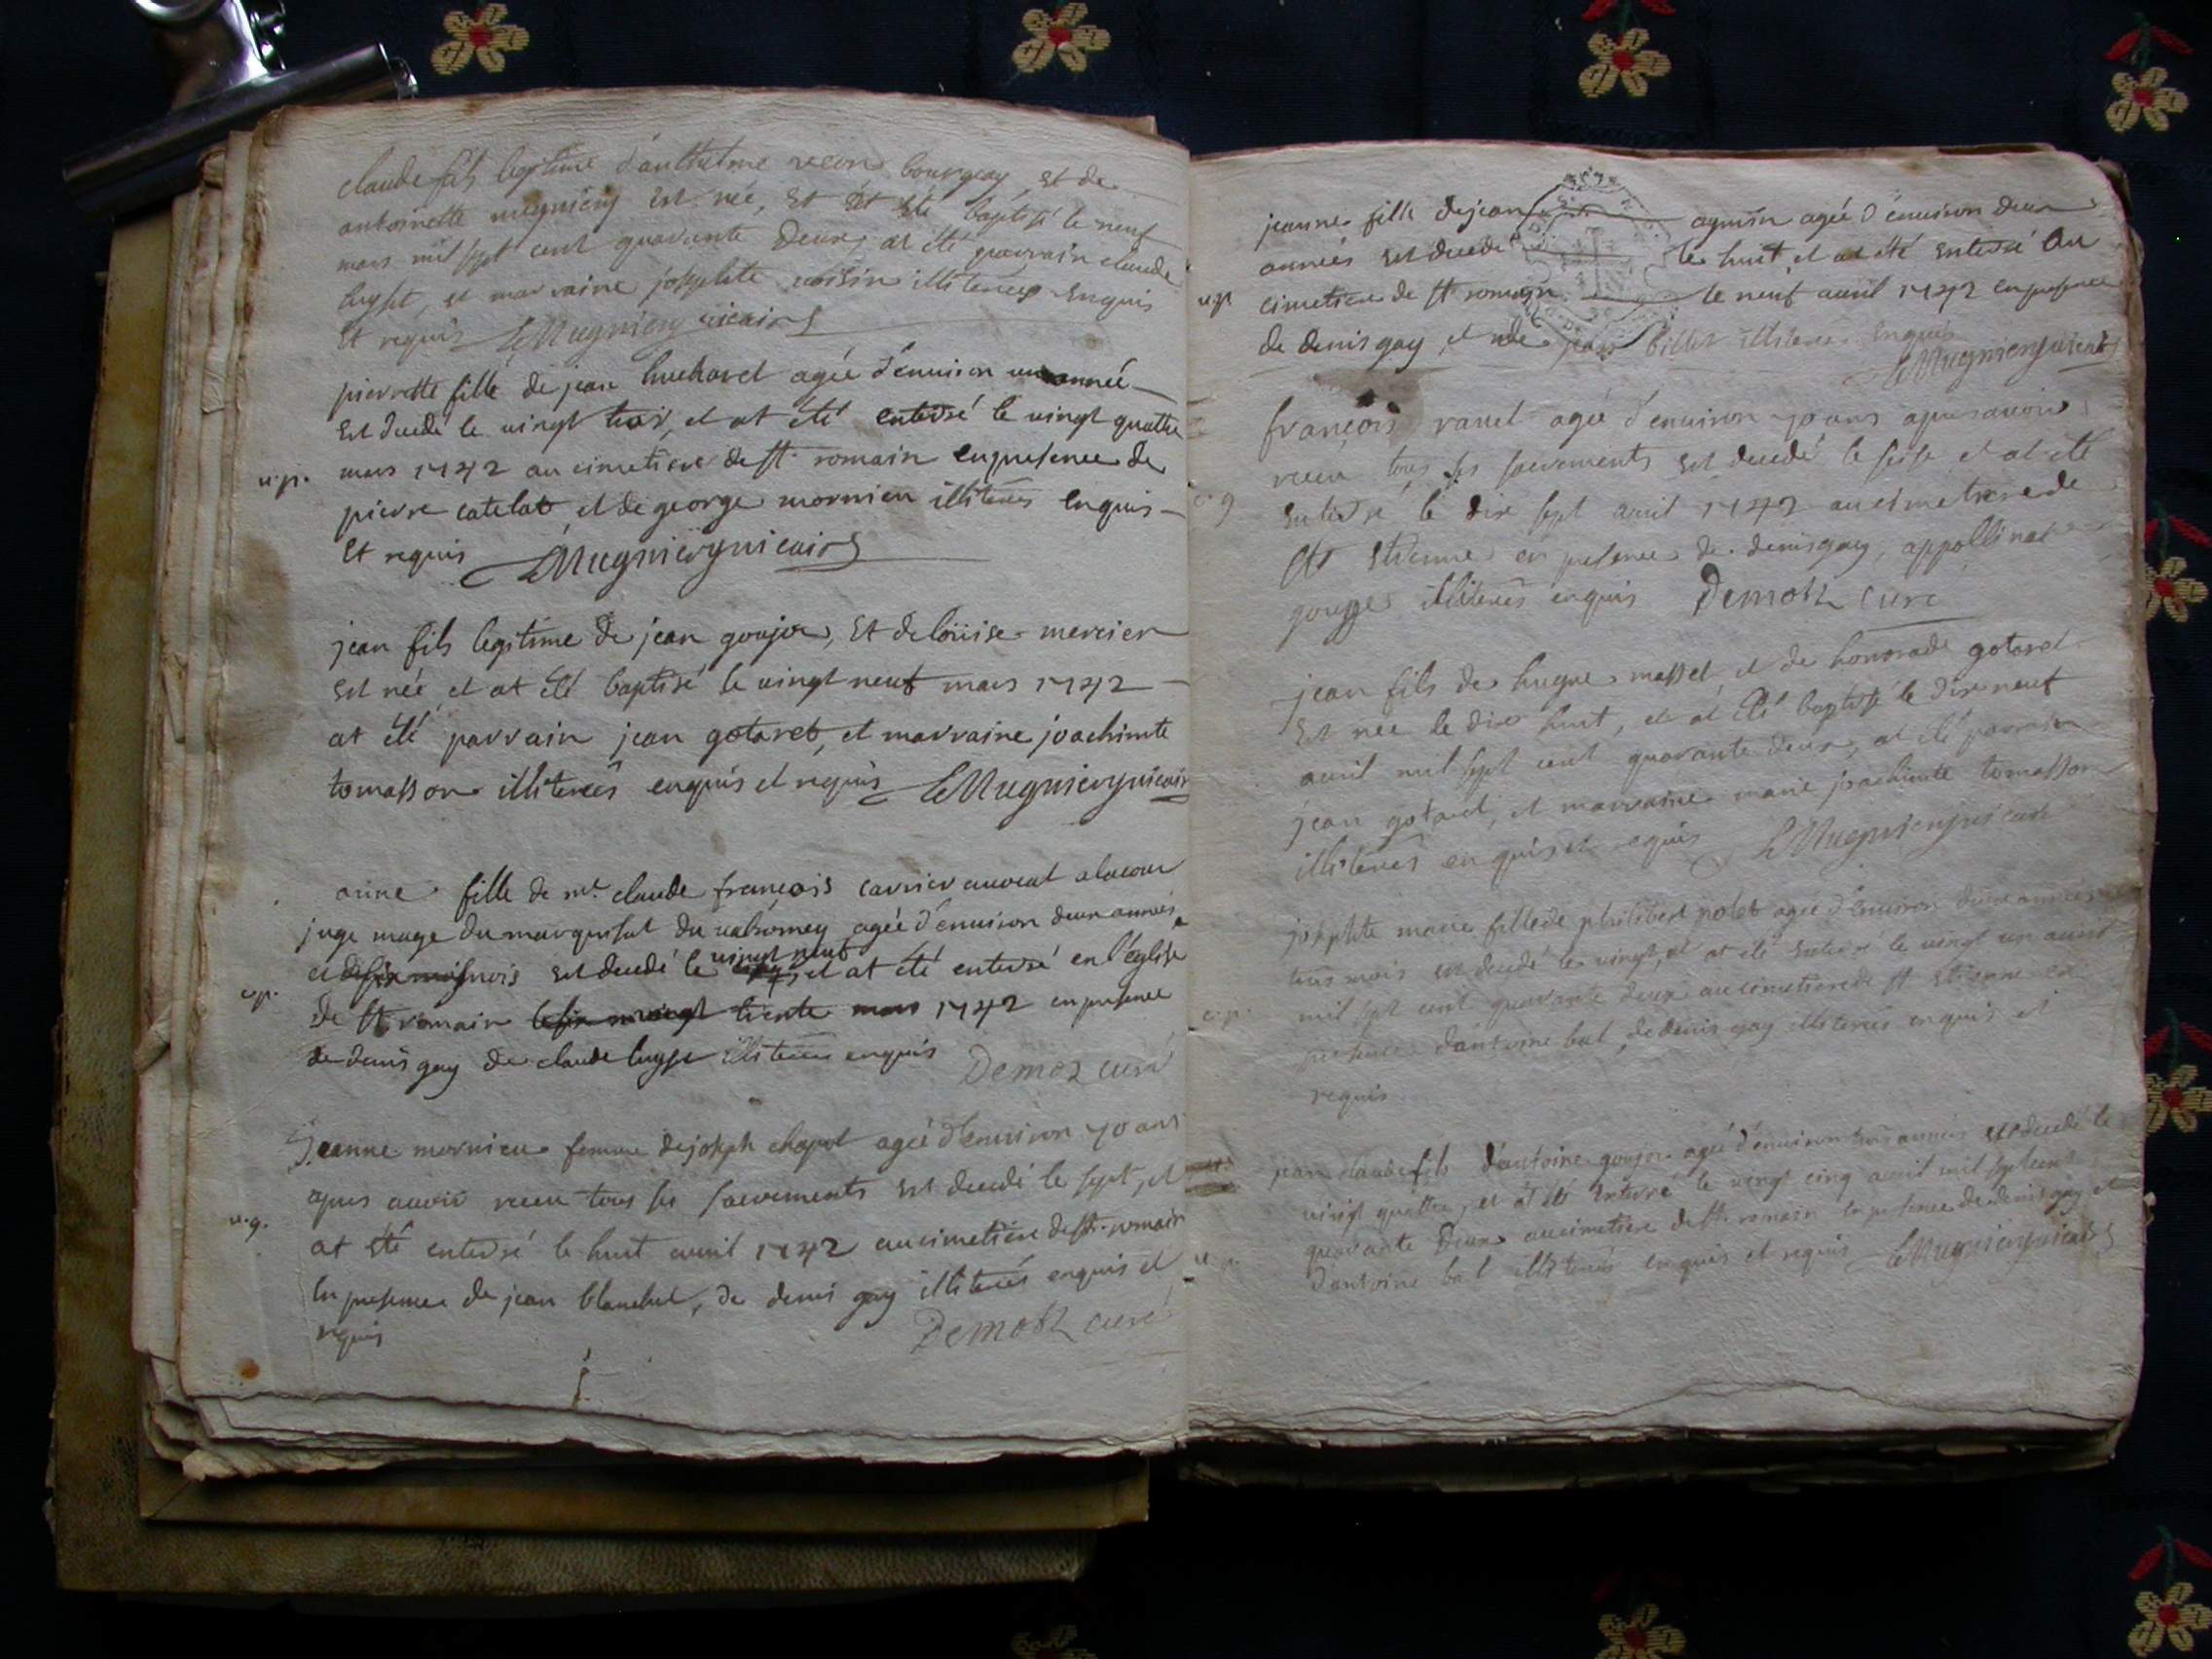 claude fils legitime d'anthelme recon bourgeoy, et de
antoinette mugniery est née, et at été baptisé le neuf
mars mil sept cent quarante deux, at été parrain claude
luyset, et marraine josephte voisin illiterés enquis
Et requis LeMugniery vicaire
pierrette fille de jean huchard agée d'environ un année
est decedé le vingt trois, et at été enterré le vingt quattre
u.p. mars 1742 au cimetiere de st romain en presence de
pierre catelat, et de george mornieu illiterés enquis
Et requis LeMugniery vicaire
jean fils legitime de jean goujon, Et de loüise mercier
est née et at été baptisé le vingt neuf mars 1742
at été parrain jean gotaret, et marraine joachimte
tomasson illiterés enquis et requis LeMugniery vicaire
anne fille de mr. claude françois carrier avocat a la cour
juge mage du marquisat du valromey agée d'environ deux années
et mois est decedé le vingt neuf et at été enterré en l'eglise
de st romain trente mars 1742 en presence
de denis gay de claude luysset illiterés enquis
Demotz curé
Jeanne mornieu femme de joseph chapot agée d'environ 70 ans
apres avoir receu tous ses sacrements est decedé le sept, et
u.g. at été enterré le huit avril 1742 au cimetiere de st romain
en presence de jean blanchet, de denis gay illiterés enquis et
requis Demotz curé
jeanne fille de jean aymoin agée d'environ deux
années est decedé le huit, et at été enterré au
u.p. cimetiere de st romain le neuf avril 1742 en presence
de denis gay, et de jean billet illiterés enquis
LeMugniery vicaire
françois ravet agée d'environ 70 ans apres avoir
receu tous ses sacrements est decedé le seise et at été
enterré le dix sept avril 1742 au cimetiere de
st Etienne en presence de denis gay, appollinat
illiterés enquis Demotz curé
jean fils de hugue masset, et de honorade gotaret
Est née le dix huit, et at été baptisé le dix neuf
avril mil sept cent quarante deux, at été parrain
jean gotaret, et marraine marie joachimte tomasson
illiterés enquis et requis LeMugniery vicaire
josephte marie fille de philibert polet agée d'environ deux années
trois mois est decedé le vingt, et at été enterré le vingt un avril
mil sept cent quarante deux au cimetiere de st Etienne en
presence d'antoine bal, de denis gay illiterés enquis et
requis
jean claude fils d'antoine goujon agée d'environ trois années est decedé le
vingt quattre, et at été enterré le vingt cinq avril mil sept cent
quarante deux au cimetiere de st romain en presence de denis gay et
d'antoine bal illiterés enquis et requis LeMugniery vicaire